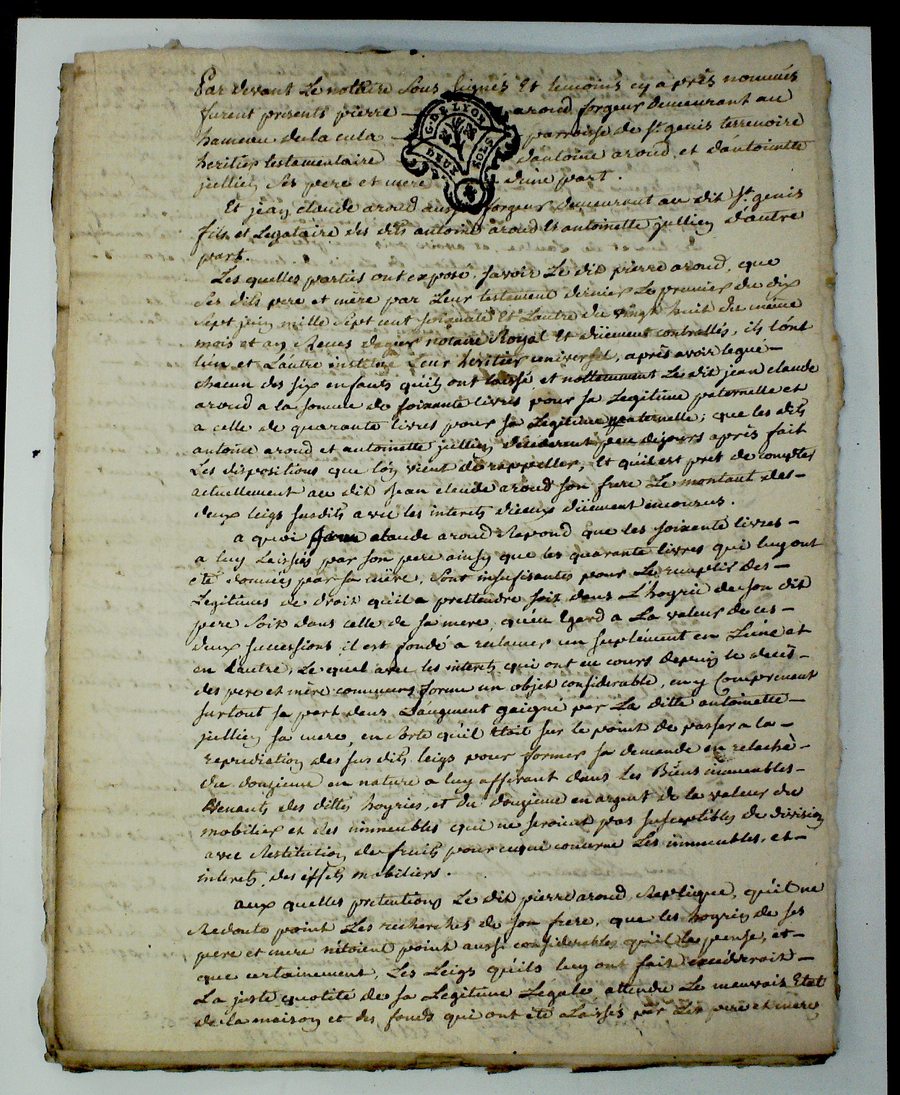 Par devant Le notaire Sous signés Et temoins cy après nommés
furent présents pierre aroud forgeur demeurant au
hameau de la cula parroisse de st genis terrenoire
heritier testamentaire dantoine aroud, et dantoinette
jullien Ses pere et mere dune part.
G. DE LYON
DEUX SOLS
Et jean claude aroud aussi forgeur demeurant au dit St genis
fils et Legataire des dits antoine aroud Et antoinette jullien d'autre
part.
Les quelles parties ont exposé, Savoir Le dit pierre aroud, que
Ses dits pere et mère par Leur testament dernier Le premier du dix
Sept juin mille Sept cent soixante Et L'autre du vingt huit du même
mois et an Recus notaire Royal Et düement controllés, ils L'ont
L'un et L'autre institué Leur heritier universel, après avoir legué
chacun des six enfants qu'ils ont laissé et nottemment Le dit jean claude
aroud a la somme de soixante livres pour sa Legitime paternelle et
a celle de quarante livres pour sa Legitime maternelle; que les dits
antoine aroud et antoinette jullien décéderent peu de jours après fait
Les dispositions que l'on vient de rappeller, Et qu'il est prêt de compter
actuellement au dit Jean claude aroud son frere Le montant des
deux leigs susdits avec les interets d'iceux düement encourus.
a quoi jean claude aroud Repond que les soixante livres
a luy Laissés par son pere ainsy que les quarante livres qui luy ont
été données par sa mère, sont insufisantes pour Le remplir des
Legitimes de droit qu'il a prettendre soit dans L'hoyrie de son dit
pere Soit dans celle de sa mere, qu'eu Egard a La valeur de ces
deux successions il est fondé a reclamer un suplement en L'une et
en L'autre, Le quel avec les interets qui ont eu cours depuis le decès
des pere et mère communs forme un objet considerable, en y Comprenant
surtout sa part dans L'augment gaigné par La ditte antoinette
jullien sa mere, en sorte qu'il Etait sur le point de passer a la
repudiation des sus dits leigs pour former sa demande en relache
du douzieme en nature a luy afferant dans Les Biens immeubles
Venants des dittes hoyries, et du douzieme en argent de la valeur du
mobilier et des immeubles qui ne seroient pas susceptibles de division
avec Restitution de fruits pour ce qui concerne Les immeubles, et
interets des effets mobiliers.
aux quelles pretentions Le dit pierre aroud Replique, qu'il ne
Redoute point Les recherches de son frere, que les hoyries de ses
pere et mere n'etoient point aussi considerables qu'il le pense, et
que certainement, Les Leigs qu'ils luy ont fait excéderoit
La juste quotité de sa Legitime Legale attendu Le mauvais Etat
de la maison et des fonds qui ont été Laissés par Les pere et mere